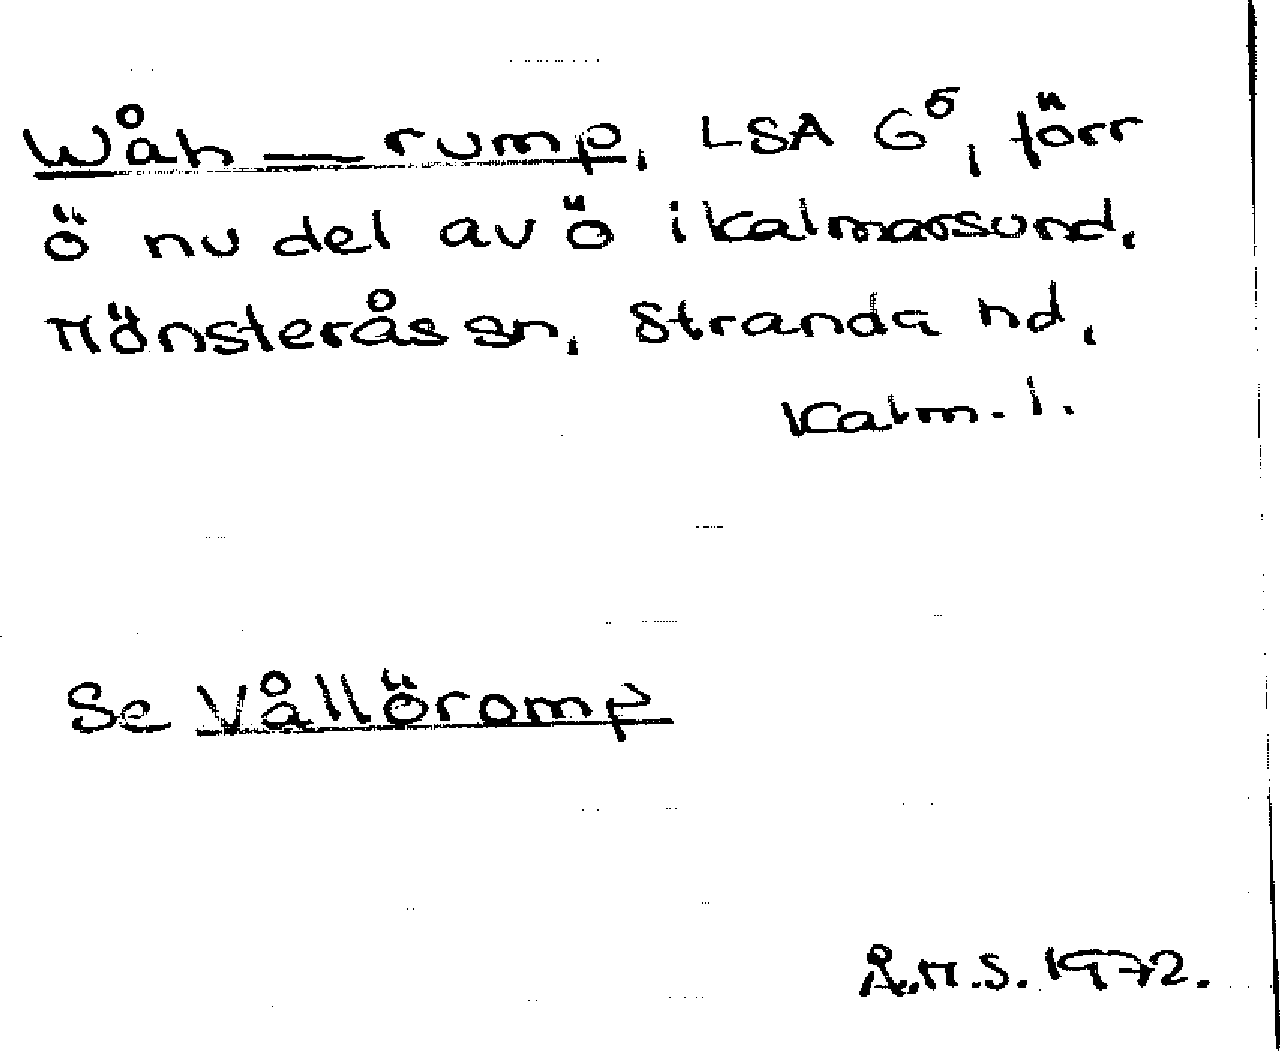 Wåh — rump, LSA G⁵, förr
ö nu del av ö i Kalmarsund,
Mönsterås sn, Stranda hd,
Kalm. l.
Se Vållöromp
Å.M.S. 1972.